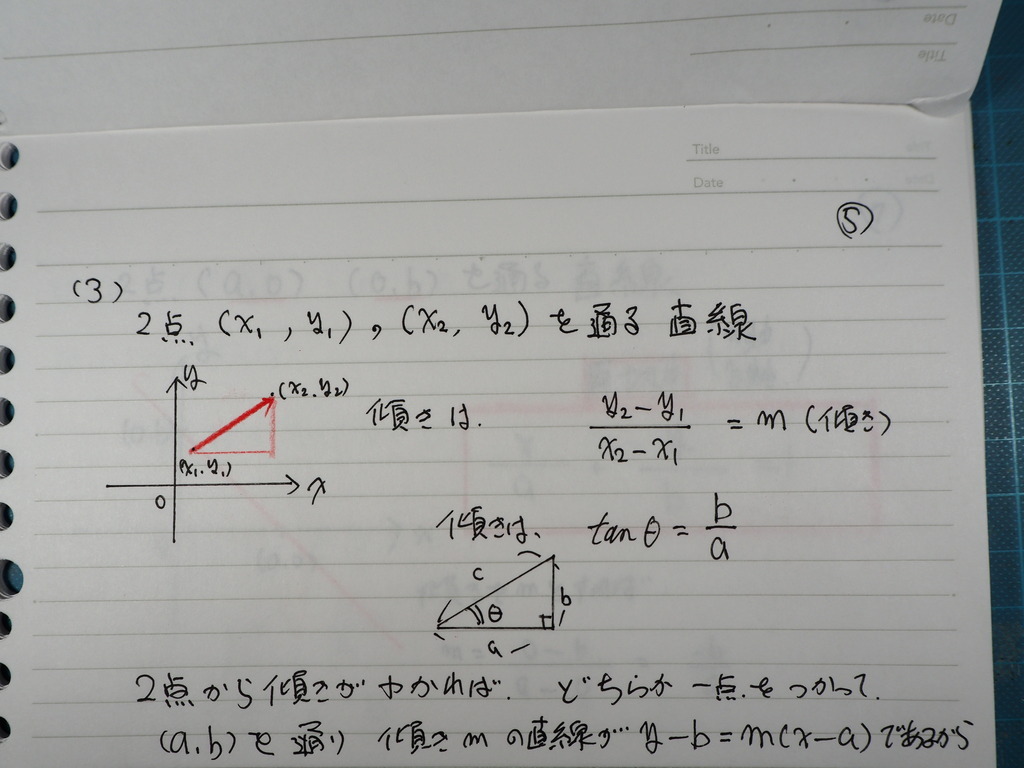 Date
Title
Title
Date
⑤
(3)
2点 (x₁, y₁), (x₂, y₂) を通る 直線
y
(x₂, y₂)
(x₁, y₁)
0
x
傾きは. (y₂ − y₁)/(x₂ − x₁) = m (傾き)
傾きは、 tan θ = b/a
c
θ
b
a
2点から傾きがわかれば. どちらか 一点をつかって.
(a, b) を 通り 傾き m の直線が… y − b = m(x − a) であるから